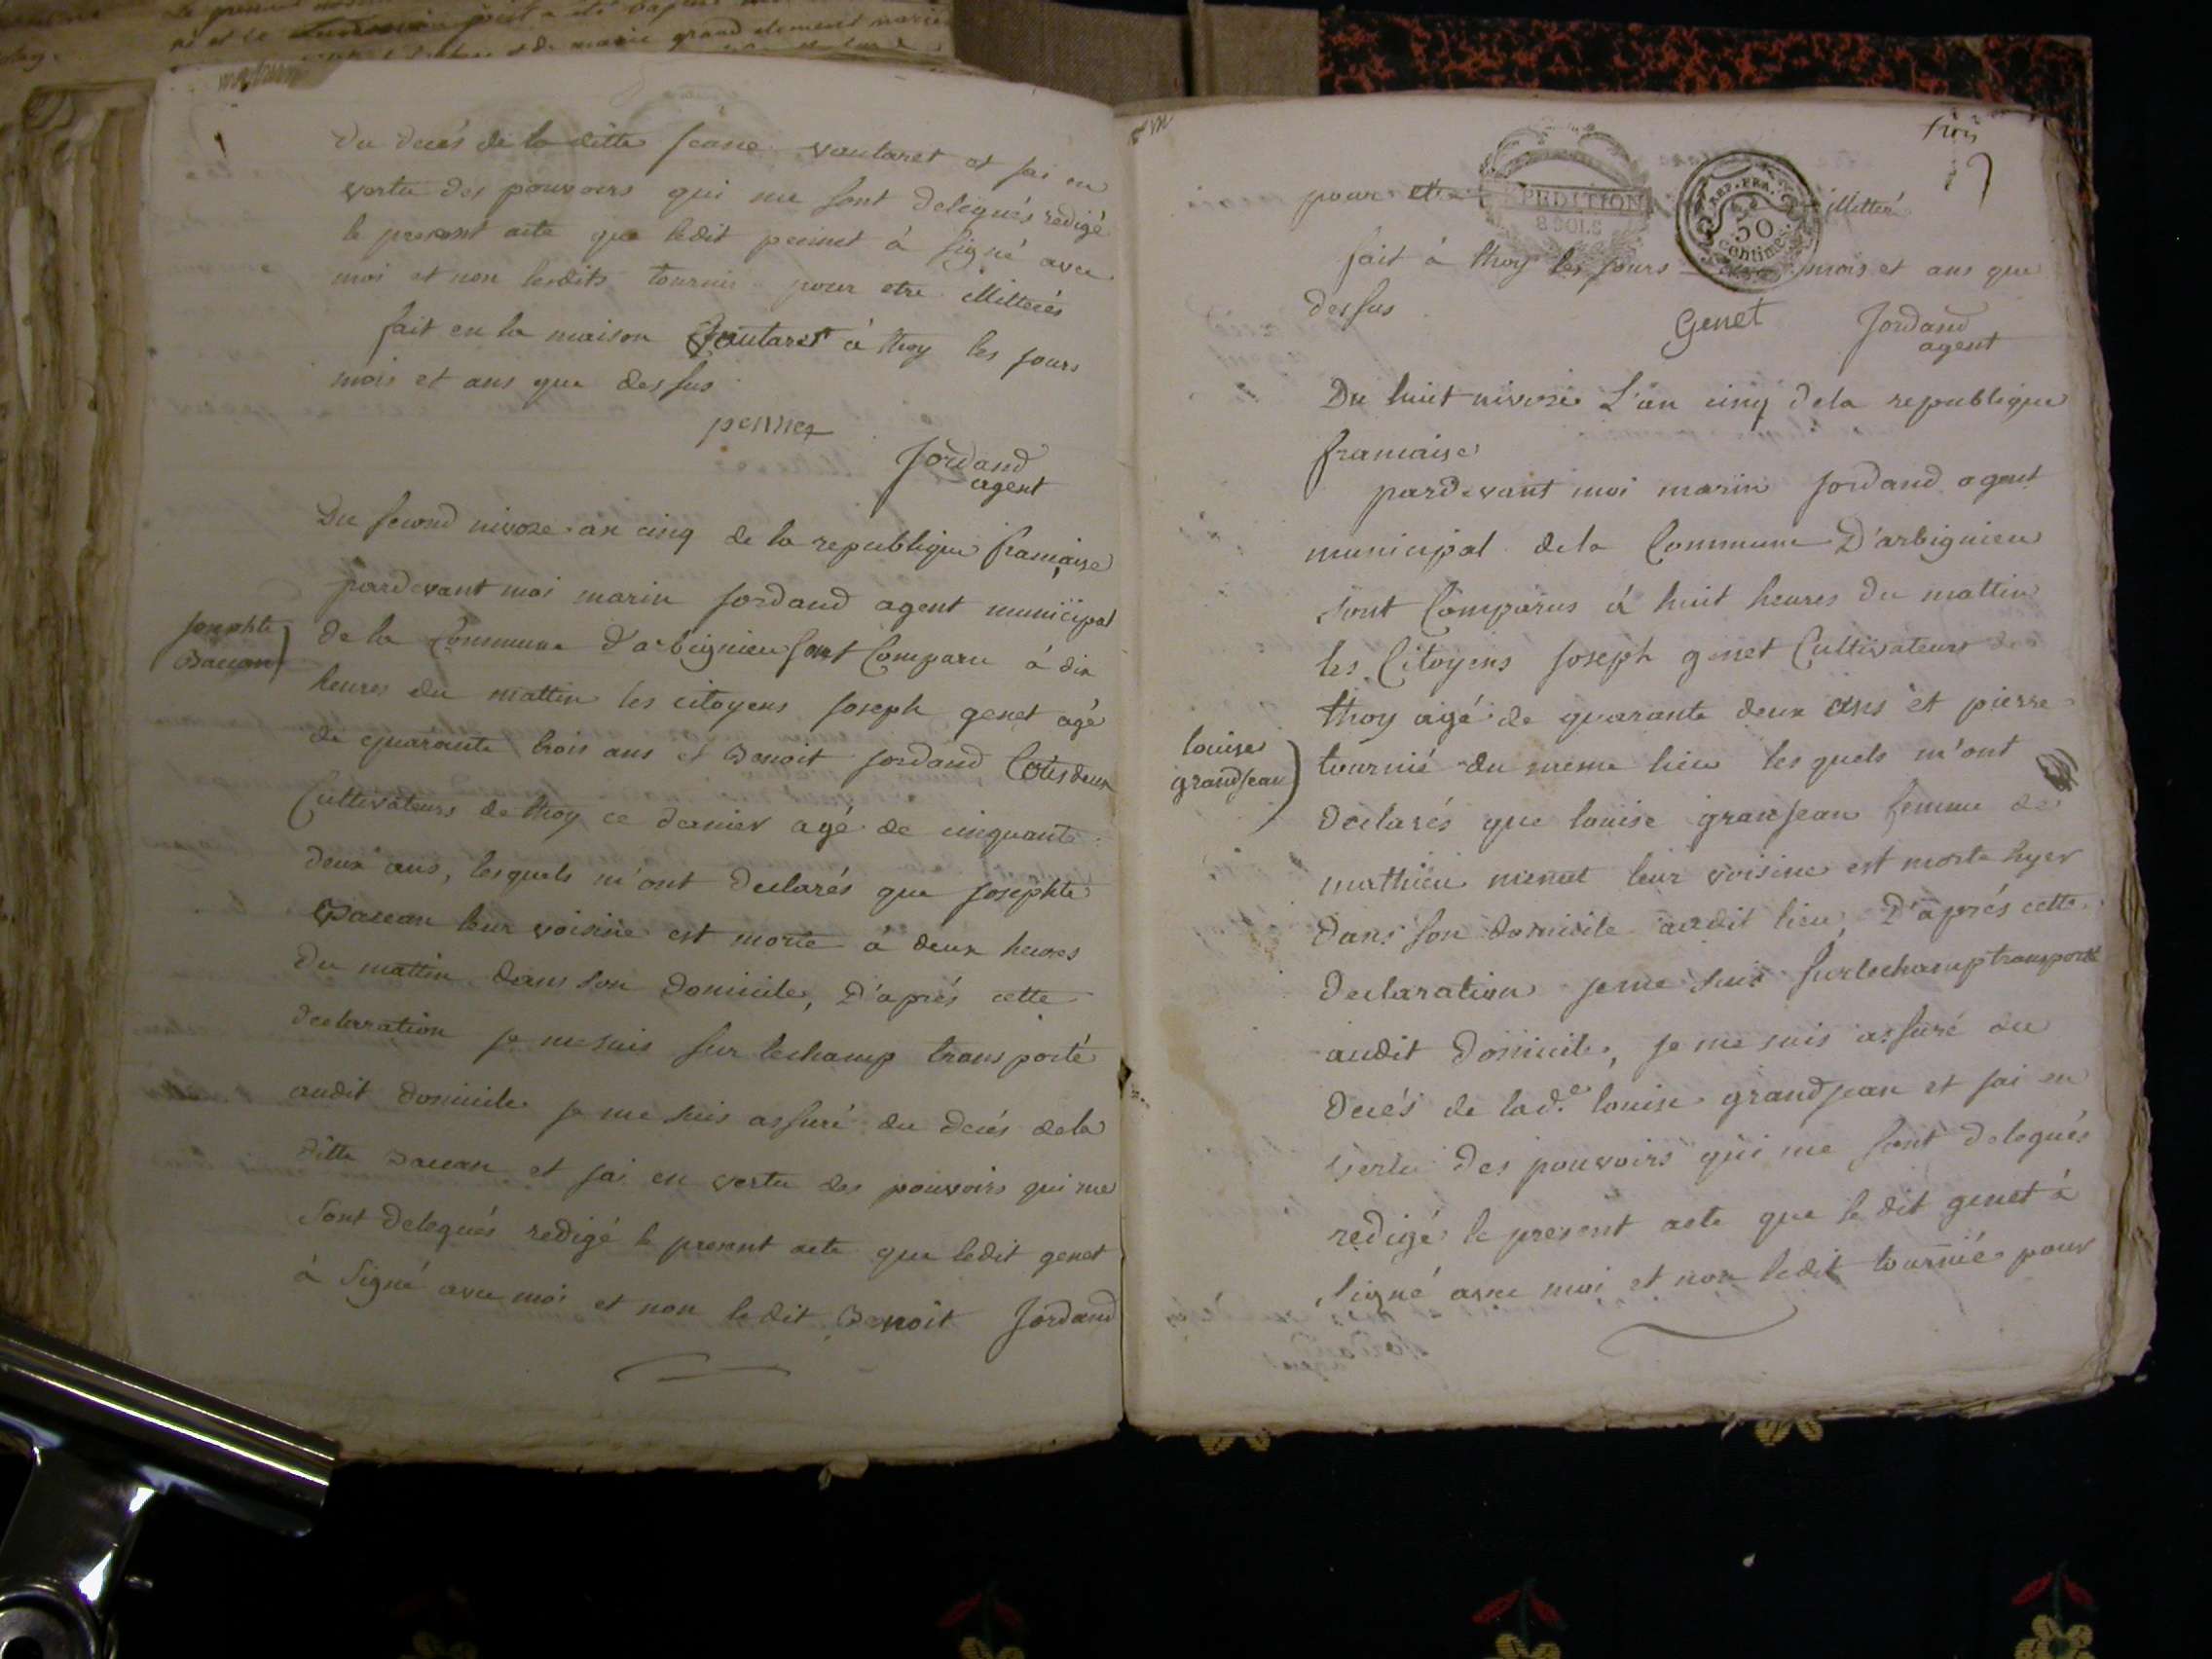 du decés de la ditte jeane vautaret et jai en
vertu des pouvoirs qui me sont delegués redigé
le present acte que ledit pernet à signé avec
moi et non lesdits tournier pour etre illitterés
fait en la maison vautaret à thoy les jours
mois et ans que dessus
pernet
Jordand
agent
Du second nivoze an cinq de la republique françaize
pardevant moi marin jordand agent municipal
josephte
Baucan
de la Commune d'arbignieu sont Comparu à dix
heures du mattin les citoyens joseph genet agé
de quarante trois ans et Benoit jordand tous deux
Cultivateurs de thoy ce dernier agé de cinquante
deux ans, lesquels m'ont declarés que josephte
Baucan leur voisine est morte à deux heures
du mattin dans son domicile, D'aprés cette
declaration je me suis sur lechamp transporté
audit domicile je me suis assuré du decés dela
ditte Baucan et jai en vertu des pouvoirs qui me
sont delegués redigé le present acte que ledit genet
à signé avec moi et non le dit Benoit Jordand
trois
pour etre
EXPEDITION
8 SOLS
REP. FRA.
50
centimes
illitteré
fait à thoy les jours mois et ans que
dessus
Genet Jordand
agent
Du huit nivose L'an cinq dela republique
francaise
pardevant moi marin jordand agent
municipal dela Commune D'arbignieu
sont Comparus à huit heures du mattin
les Citoyens joseph genet Cultivateurs de
thoy agé de quarante deux ans et pierre
louise
grandjean
tournié du meme lieu lesquels m'ont
declarés que louise granjean femme de
mathieu menut leur voisine est morte hyer
dans son domicile audit lieu, D'aprés cette
declaration je me suis surlechamp transporté
audit domicile, je me suis assuré du
decés de lad.e louise grandjean et jai en
vertu des pouvoirs qui me sont delegués
redigé le present acte que le dit genet à
signé avec moi et non ledit tournié pour